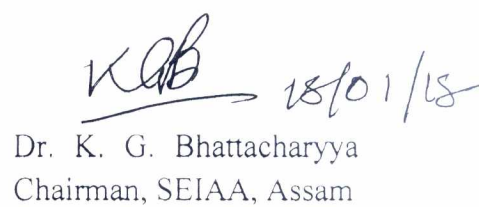 KGB 18/01/18
Dr. K. G. Bhattacharyya
Chairman, SEIAA, Assam